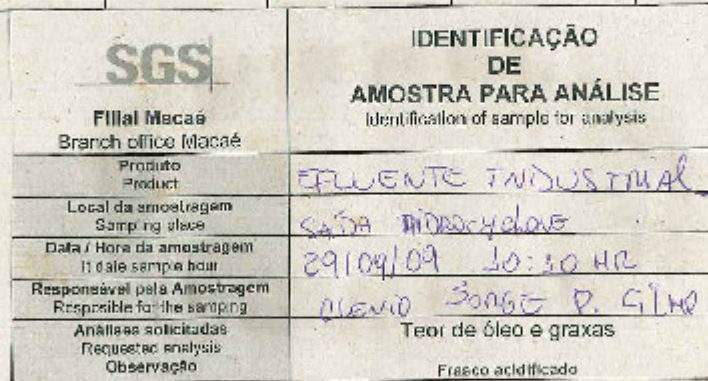 SGS
Filial Macaé
Branch office Macaé
IDENTIFICAÇÃO
DE
AMOSTRA PARA ANÁLISE
Identification of sample for analysis
Produto
Product
EFLUENTE INDUSTRIAL
Local da amostragem
Samping place
SAÍDA HIDROCYCLONE
Data / Hora da amostragem
It date sample hour
29/09/09 10:10 HR
Responsável pela Amostragem
Resposible for the samping
JORGE P.
Análises solicitadas
Requested analysis
Teor de óleo e graxas
Observação
Frasco acidificado